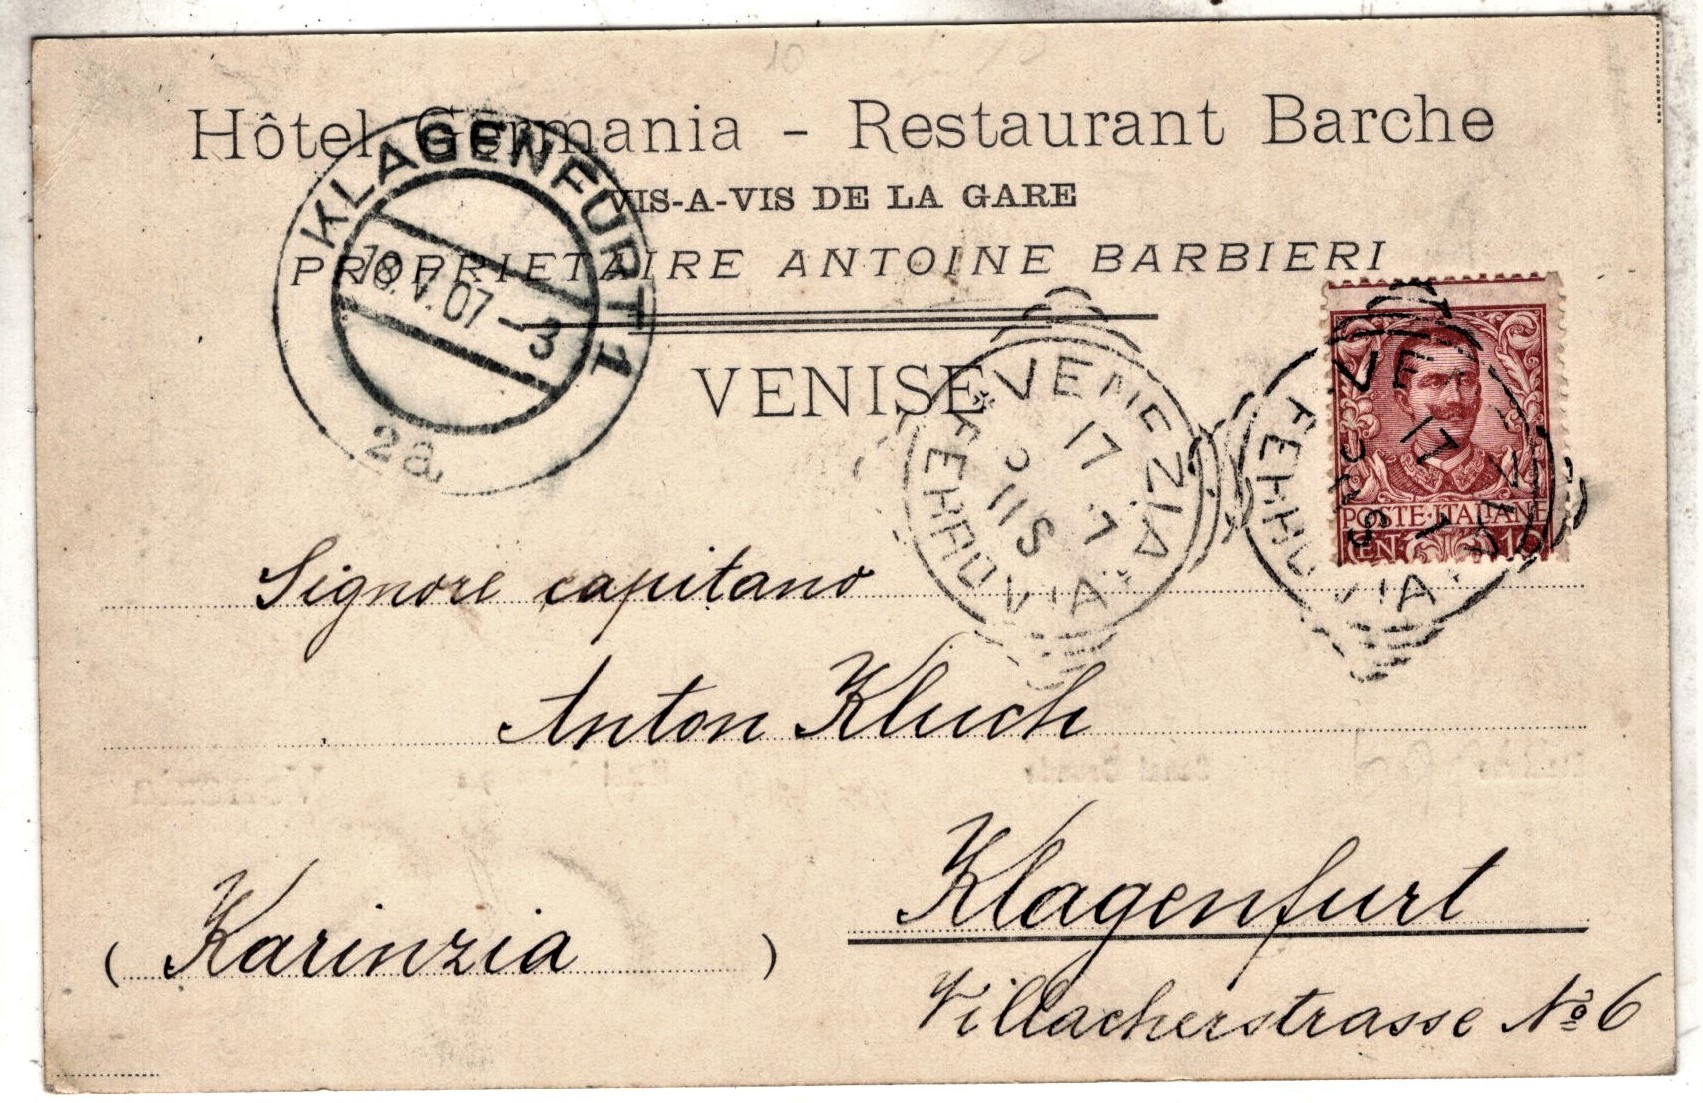 Hôtel Germania - Restaurant Barche
VIS-A-VIS DE LA GARE
PROPRIETAIRE ANTOINE BARBIERI
VENISE
KLAGENFURT 1
18.V.07-3
2a.
VENEZIA
FERROVIA
17
POSTE·ITALIANE
Signore capitano
Anton Kluch
Klagenfurt
(Karinzia)
Villacherstrasse № 6